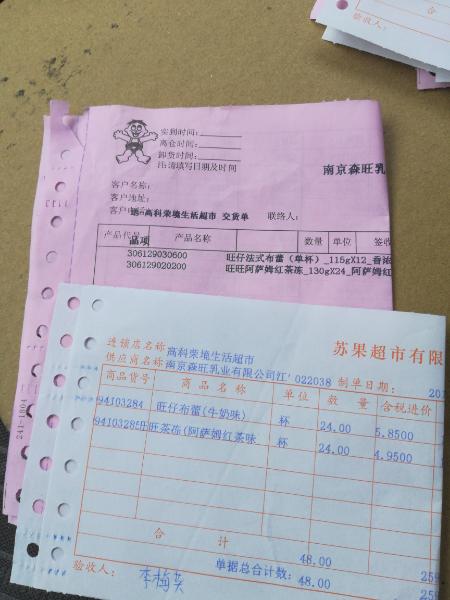 合
验收人：
实到时间：
离仓时间：
卸货时间：
注:请填写日期及时间
南京森旺乳
客户名称：
客户地址：
客户电话 高科荣境生活超市 交货单 联络人：
产品代号 产品名称 数量 单位 签收
品项
306129030600 旺仔法式布蕾（单杯）_115gX12_香浓
306129020200 旺旺阿萨姆红茶冻_130gX24_阿萨姆红
241-1804
苏果超市有限
连锁店名称 高科荣境生活超市
供应商名称 南京森旺乳业有限公司江 022038 制单日期： 201
商品货号 商品名称 单位 数量 含税进价
94103284 旺仔布蕾(牛奶味) 杯 24.00 5.8500
94103285 旺旺茶冻(阿萨姆红茶味 杯 24.00 4.9500
合计 48.00 259
单据总合计数： 48.00 259
验收人： 李梅英